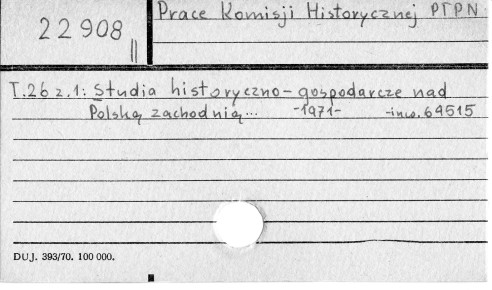 22908 II
Prace Komisji Historycznej PTPN
T.26 z.1: Studia historyczno-gospodarcze nad
Polską zachodnią... -1971- -inw. 64515
DUJ. 393/70. 100 000.